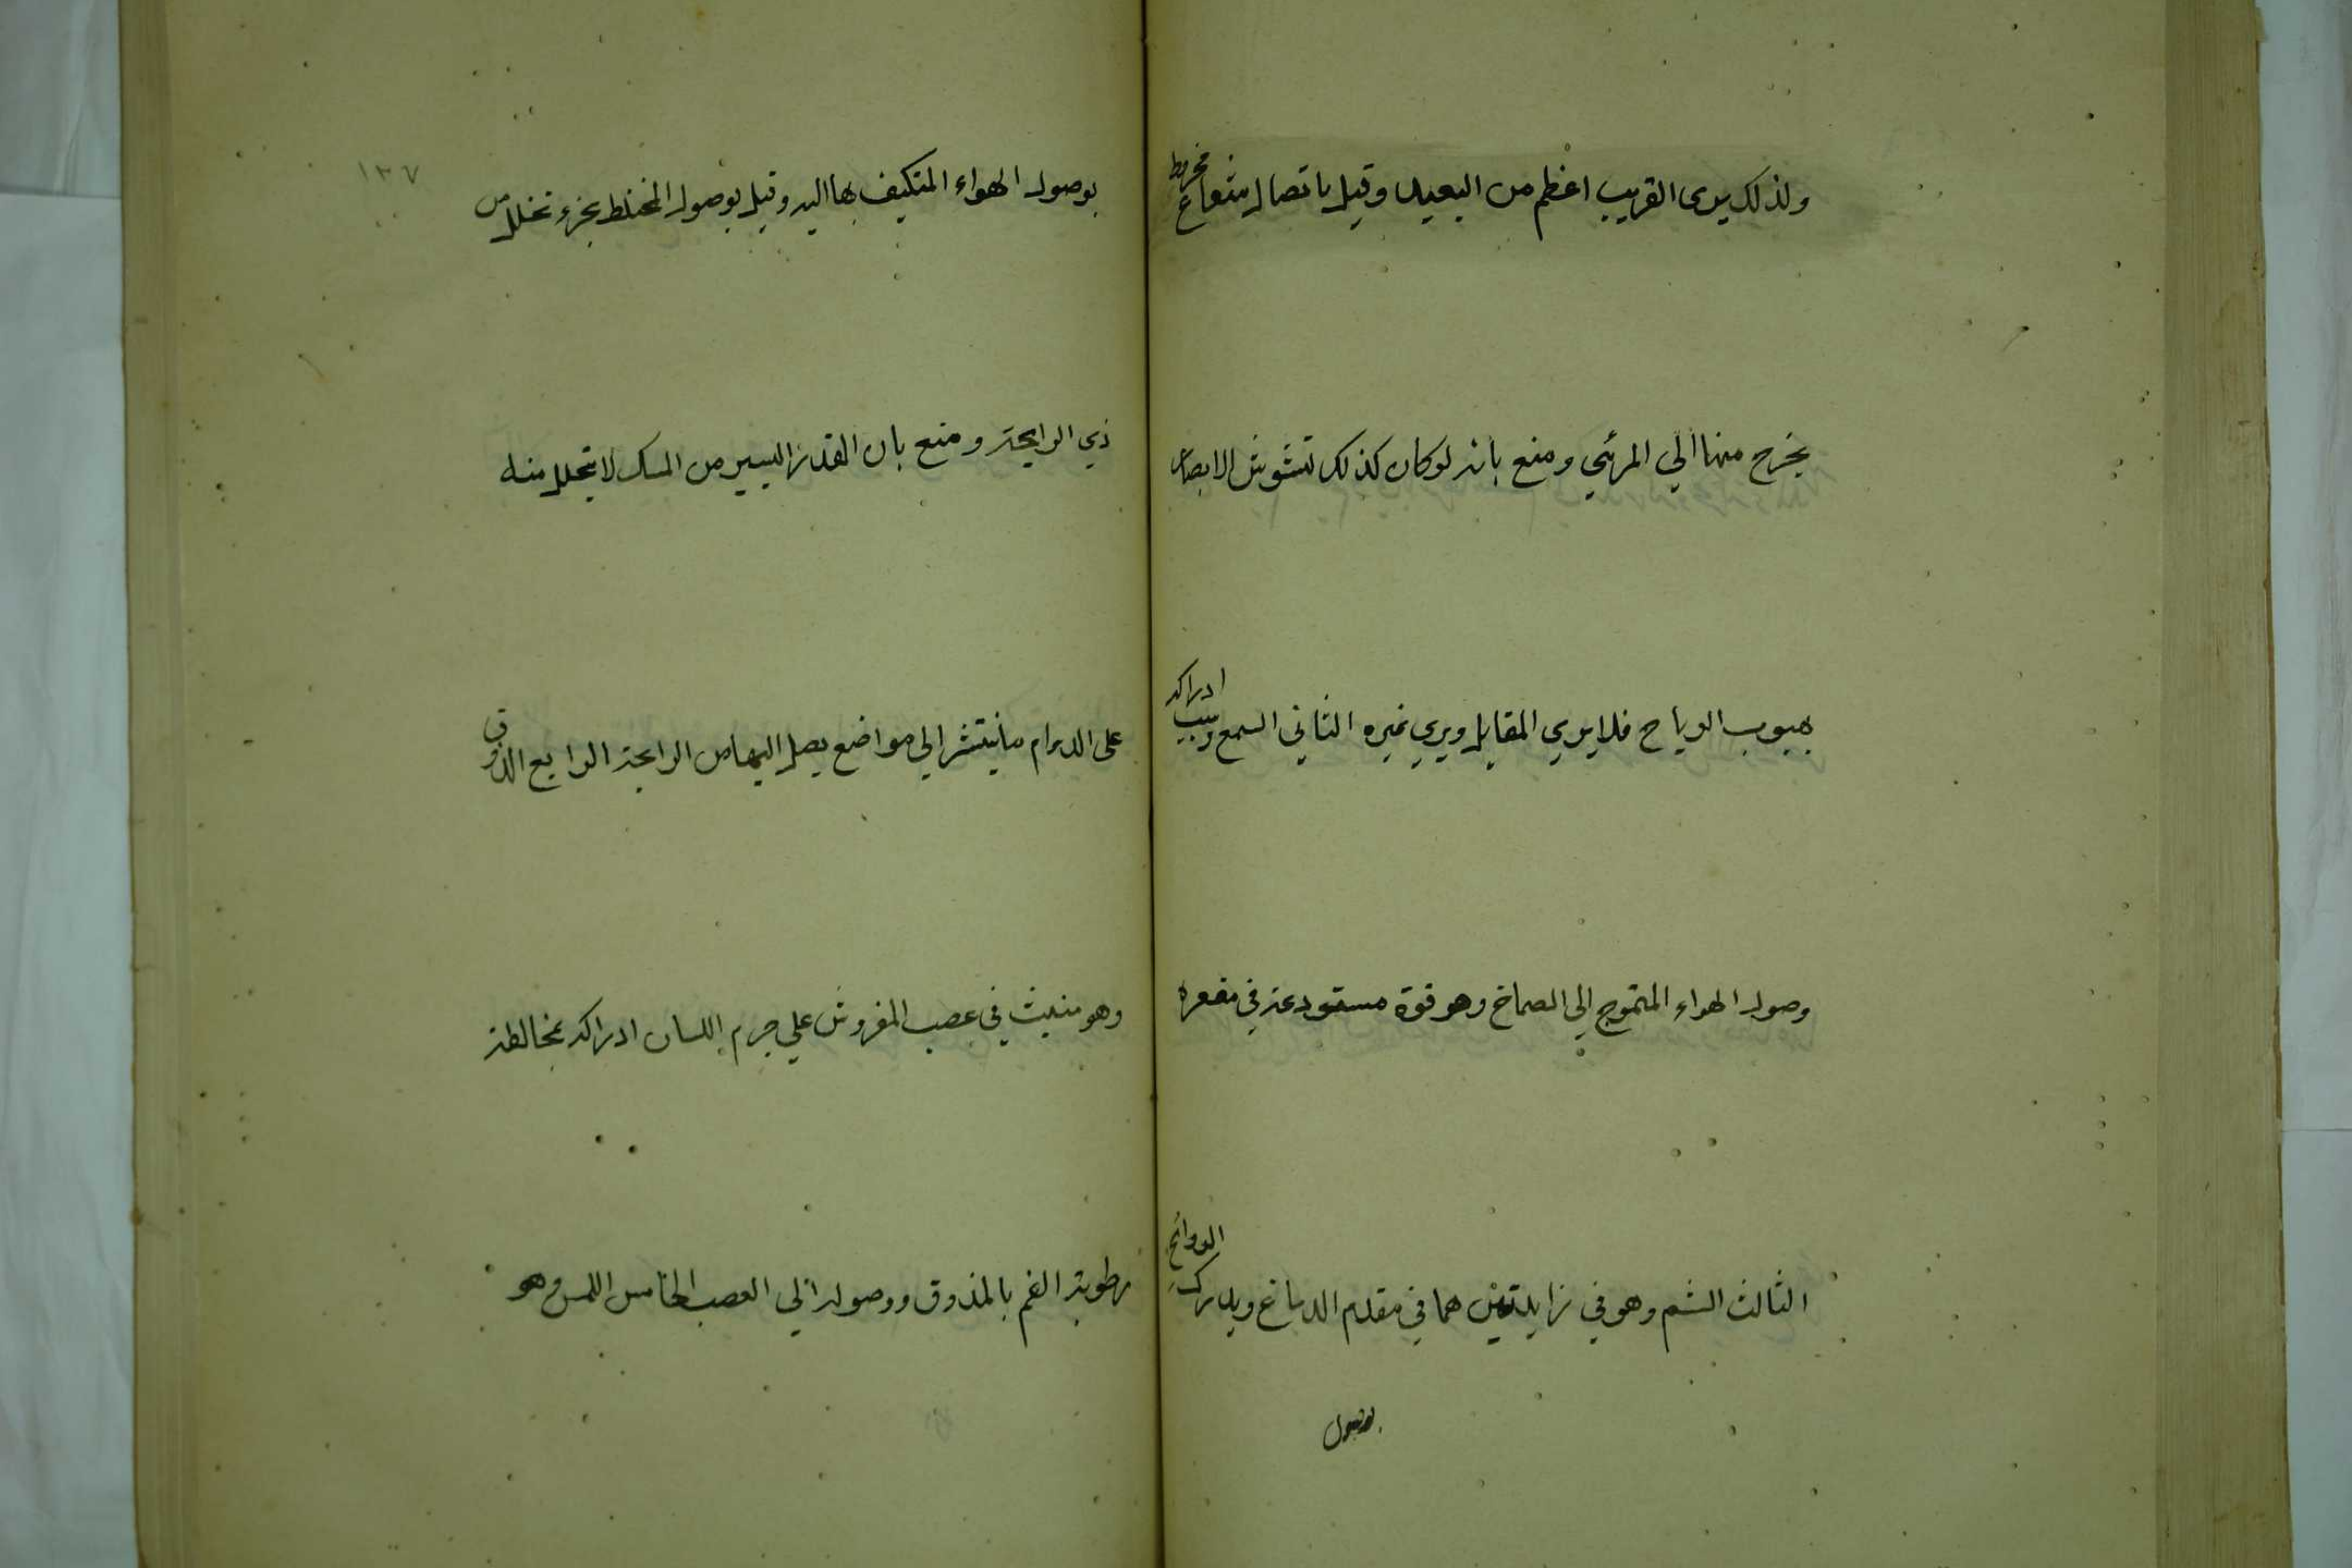 ولذلك يرى القريب اعظم من البعيد وقيل باتصال شعاع مخروط
يخرج منها الي المرئي ومنع بانه لو كان كذلك تشوش الابصار
بهبوب الرياح فلا يري المقابل ويري غيره الثاني السمع وسبب ادراكه
وصول الهواء المتموج الي الصماخ وهو قوة مستودعة في مقعره
الثالث الشم وهو في زايدتين هما في مقدم الدماغ ويدرك الروائح
بوصول
١٣٧
بوصول الهواء المتكيف بها اليه وقيل بوصول المختلط بجزء تخلل من
ذي الرايحة ومنع بان القدر اليسير من المسك لا يتحلل منه
على الدوام ما ينتشر الي مواضع يصل اليها من الرايحة الرابع الذوق
وهو منبث في عصب المفروش علي جرم اللسان ادراكه بمخالطة
رطوبة الفم بالمذوق ووصوله الي العصب الخامس اللمس وهو